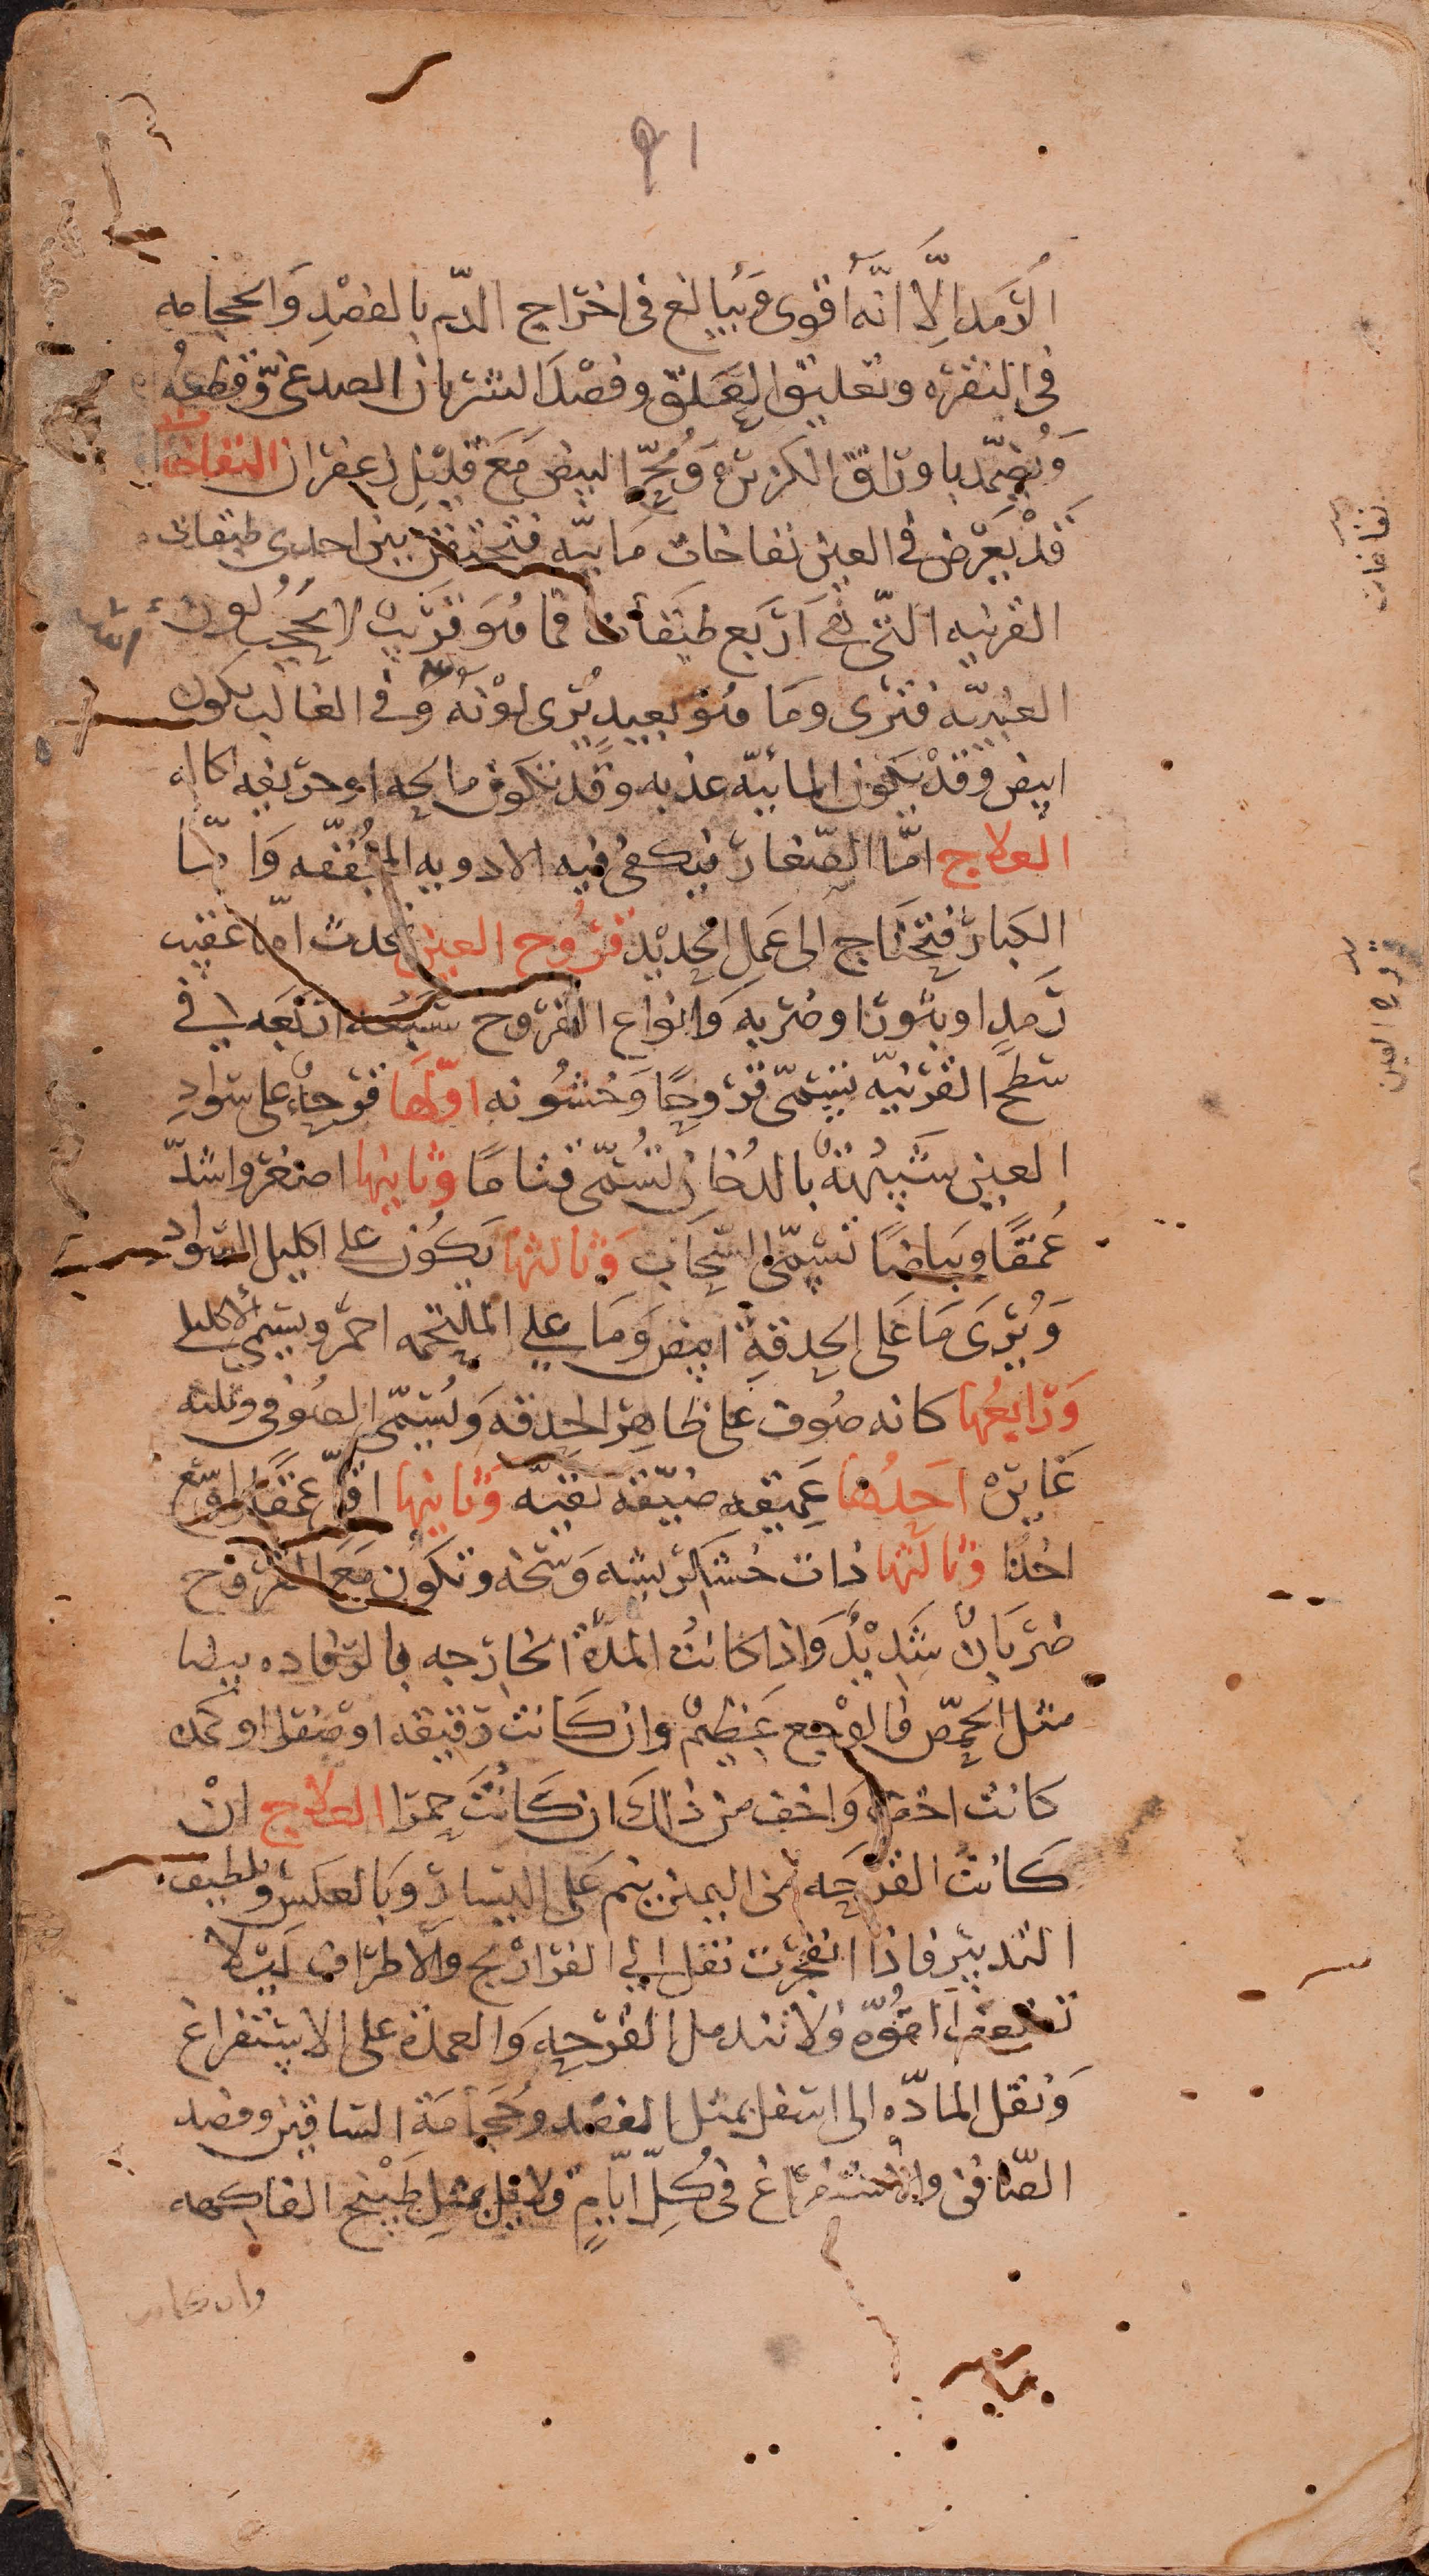 ٩١
الرَّمَد اِلَّا انَّه أقوى وَيُبالغ فى اخراج الدّم بالفصْدِ وَالحجامه
فى النقره وتعليق العَلق وفصْد الشريان الصدغىّ وَقطعهُ
وَيُضمّد باوراق الكزبره وَمُحّ البيض مَعَ قليْل زعفران النفاخات
قَدْ يَعرّض فى العين نفاخات مَائيّه فتحتقن بين احدى طبقات
القرنيه التّى هى اَربَع طبَقات فما هُوَ قريب لا يحجبُ لون
العنبيّه فترى وَمَا هُو بعيدٍ يُرى لوْنهُ وَفى الغالب يكون
ابيض وَقدْ يكون المائيّه عذبه وَقد تكون مالحه او حريفه اكاله
العلاج امّا الصّغار فيكفى فيه الادويه المجُفّفه وَامّا
الكبار فتحتَاج الى عَمَل الحديْد قرُوح العين تحدث امّا عقيب
رَمدٍ او بثورٍ او ضربه وَانواع القروح سَبعَه اربَعَه ١ فى
سَطح القرنيّه تسَمّى قروحًا وَخشُونه اوّلهَا قرحهٌ على سَوادِ
العين شبيْهَةٌ بالدُخان تسُمّى قتامًا وثانيها اصغر واشدّ
عُمقًا وبَياضًا تسَمّى السّحَاب وَثالثها يكوُن على اكليل السَّواد
وَيُرَى مَا عَلى الحدقةِ ابيض وَمَا على الملتحمه احمَر ويسَمىّ الاكليلى
وَرَابعُها كانه صُوف عَلى ظاهر الحدقه وَيُسَمّى الصُوفى وثلثه
غَايره احَدُها عَميقه ضيّقه نقيّه وَثانيها اقلّ عمقًا وَاوسَع
اخذًا وثالثها ذات خشكريشه وَسَخه وتكوُن مَعَ القروح
ضرَبانٌ شَديْدٌ وَاذا كانت المدّة الخارجه بالرفاده بيضا
مثل الحمّص فالوَجع عَظيمٌ وان كَانت رقيقه او صَفرا او كمده
كانت اخفّ وَاخف من ذالكَ ان كَانَتَ حمرا العلاج انْ
كانت القرحَه من اليمين ينم عَلى اليسَارِ وَبالعكسَ وَيُلطيف
التدبير فاذا انفجَرت نقل الى الفراريْج والاطرَاف لئلا
تضعف القُوّه فلا تندمل القرحه وَالعمدة على الاسْتفراغ
وَنقل المادّه الى اسفل بمثل الفصْد وحجَامَة السَاقين وفصد
الصّافن والاستفراغ فى كُلِّ ايّامٍ قلايل بمثل طَبيْخ الفاكهه
وان كانت
نفاخات
قروح العين